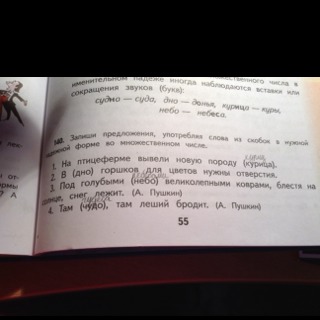 именительном падеже иногда наблюдаются вставки или
сокращения звуков (букв):
судно — суда, дно — донья, курица — куры,
небо — небеса.
140. Запиши предложения, употребляя слова из скобок в нужной
падежной форме во множественном числе.
1. На птицеферме вывели новую породу (курица).
2. В (дно) горшков для цветов нужны отверстия.
3. Под голубыми (небо) великолепными коврами, блестя на
солнце, снег лежит. (А. Пушкин)
4. Там (чудо), там леший бродит. (А. Пушкин)
55